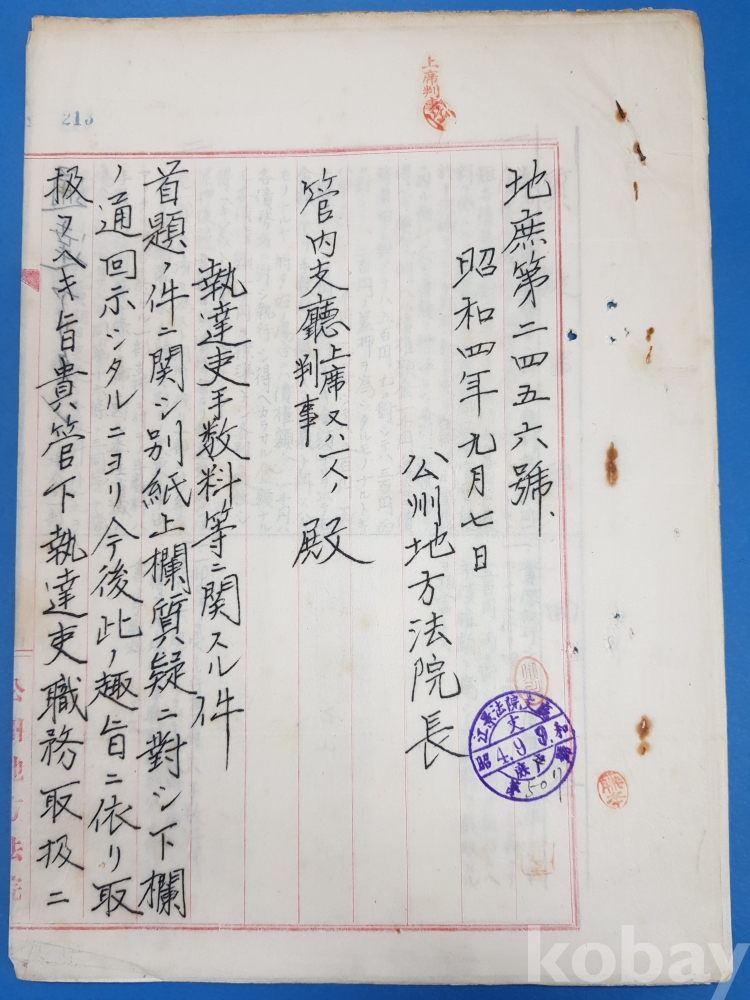 上席判事
213
地庶第二四五六號、
昭和四年九月七日
公州地方法院長
管内支廳上席又ハ一人ノ判事殿
執達吏手数料等ニ関スル件
首題ノ件ニ関シ別紙上欄質疑ニ對シ下欄
ノ通回示シタルニヨリ今後此ノ趣旨ニ依リ取
扱フヘキ旨貴管下執達吏職務取扱ニ
公州地方法院
江景法院支廳
昭和
4.9.9.
507
kobay